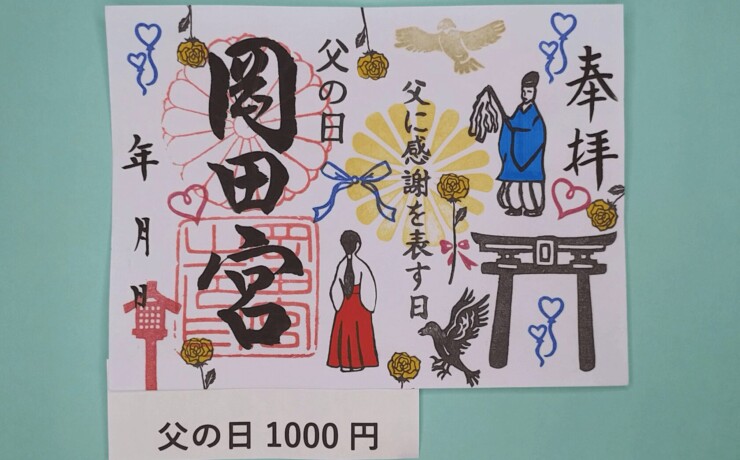 奉拝
父に感謝を表す日
父の日
岡田宮
年月日
父の日 1000 円